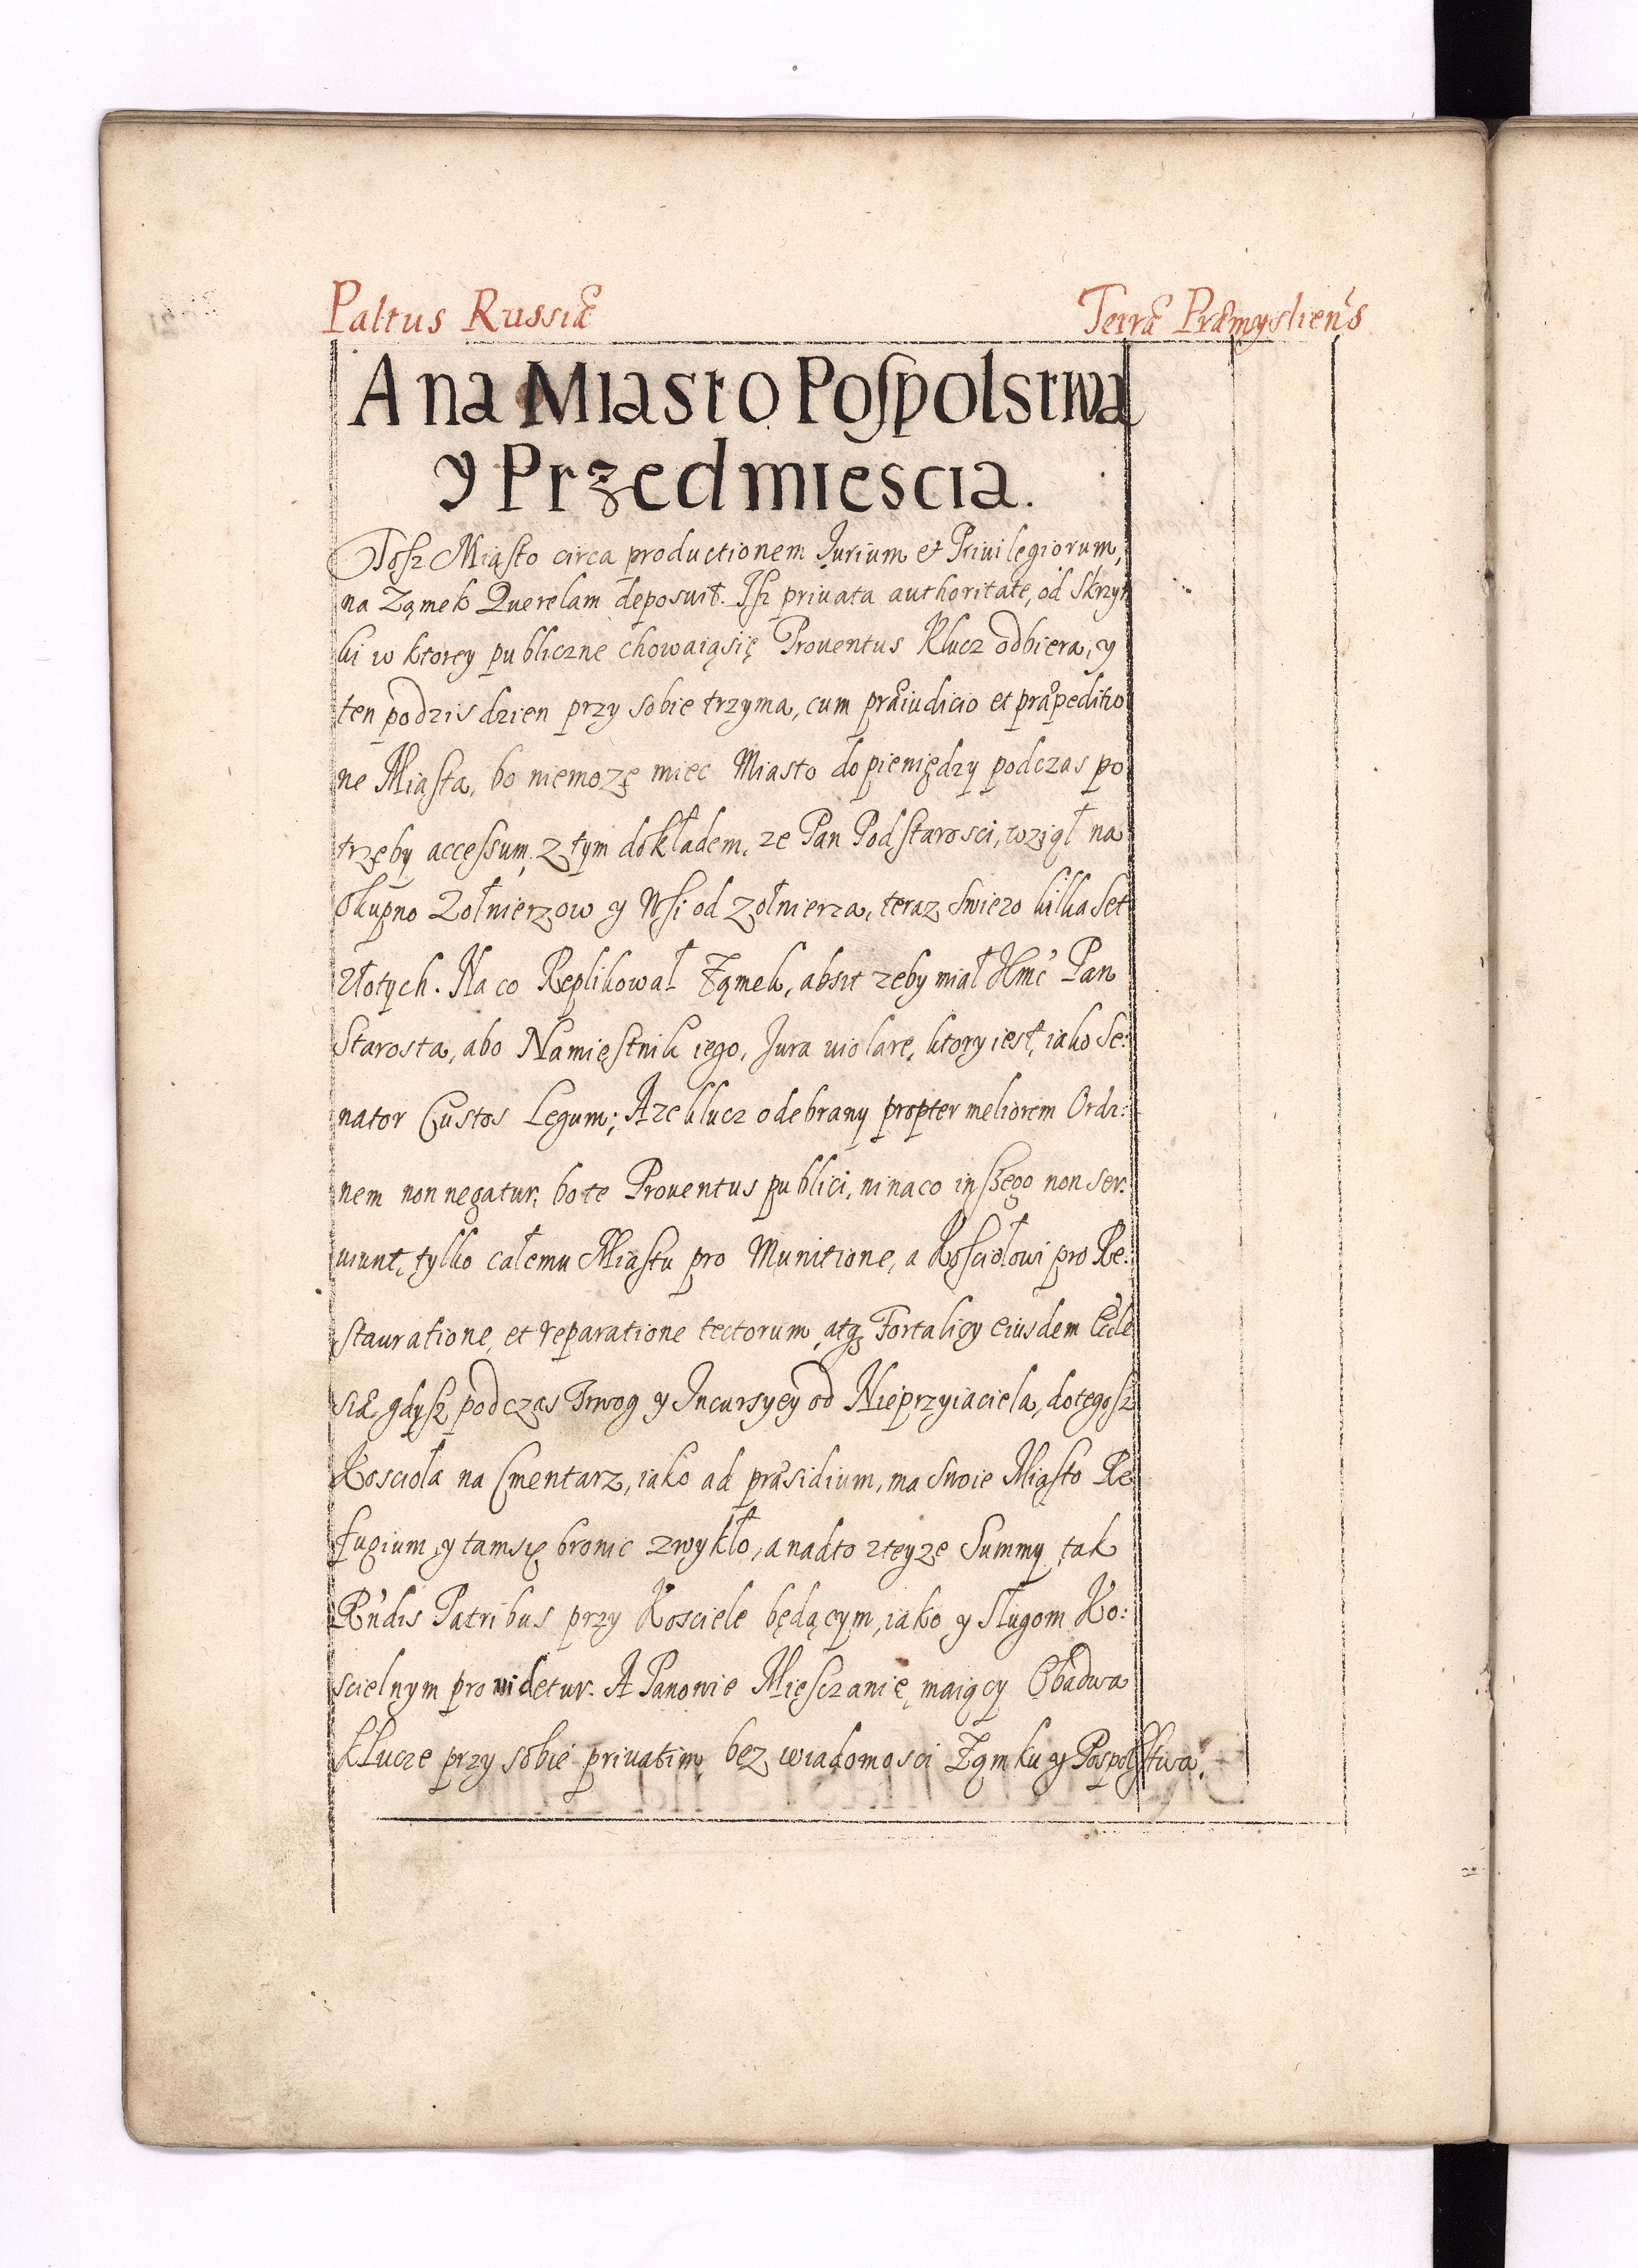 Paltus Russiæ
Terræ Præmysliens
A na Miasto Poſpolstwa
y Przedmiescia.
Tosz Miasto circa productionem Jurium et Priuilegiorum,
na Ząmek Querelam deposuit. Jsz priuata authoritate, od Skrzyn
ki w ktorey publiczne chowaiąsię Prouentus Klucz odbiera, y
ten podzis dzien przy sobie trzyma, cum præiudicio et præpeditio
ne Miasta, bo niemozę miec Miasto do pieniędzy podczas po
trzęby accęssum, z tym dokładem, ze Pan Podstarosci, wziął na
Okupno Zołnierzow y Wsi od zołnierza, teraz swiezo kilka set
złotych. Na co Replikował Ząmek, absit zeby miał Jmć Pan
Starosta, abo Namięstnik iego, Jura uiolare, ktory iest, iako Se:
nator Custos Legum; A ze klucz odebrany propter meliorem Ordi:
nem non negatur, bo te Prouentus publici, ni na co inszego non ser:
uiunt, tylko całemu Miastu pro Munitione, a Kosciołowi pro Re:
stauratione, et reparatione tectorum, atq Fortalicy eiusdem Eccle
siæ, gdysz podczas Trwog y Incursyey od Nieprzyiaciela, do tegosz
Koscioła na Cmentarz, iako ad præsidium, ma swoie Miasto Re
fugium, y tamsię bronic zwykło, a nadto zteyze Summy tak
Rndis Patribus przy Kosciele będącym, iako y Sługom Ko:
scielnym prouidetur. A Panowie Mięsczanię, maiący Obadwa
Klucze przy sobie priuatim, bez wiadomosci Ząmku y Pospolstwa,